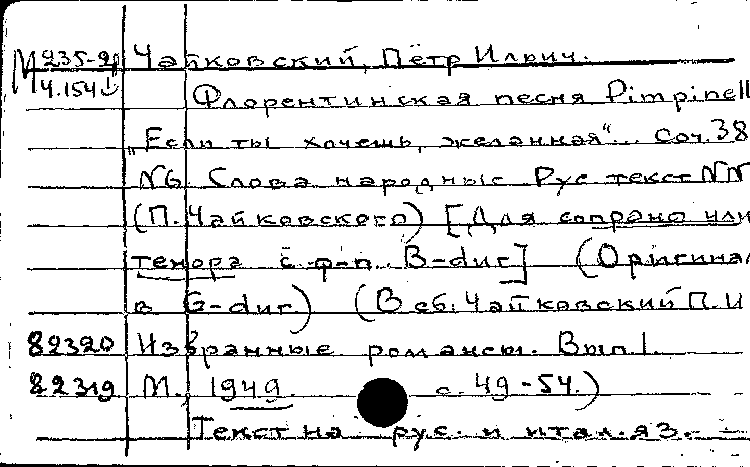 М 235-21 Чайковский, Пётр Ильич.
Ч.154 Флорентинская песня Pimpinell
„Если ты хочешь, желанная“... Соч. 38
№6. Слова народные. Рус. текст NN
(П. Чайковского) [Для сопрано или
тенора с ф-п. B-dur] (Оригинал
в G-dur.) (В сб: Чайковский П.И
82320 Избранные романсы. Вып 1.
82319 М., 1949. с. 49-54.)
Текст на рус. и итал. яз.